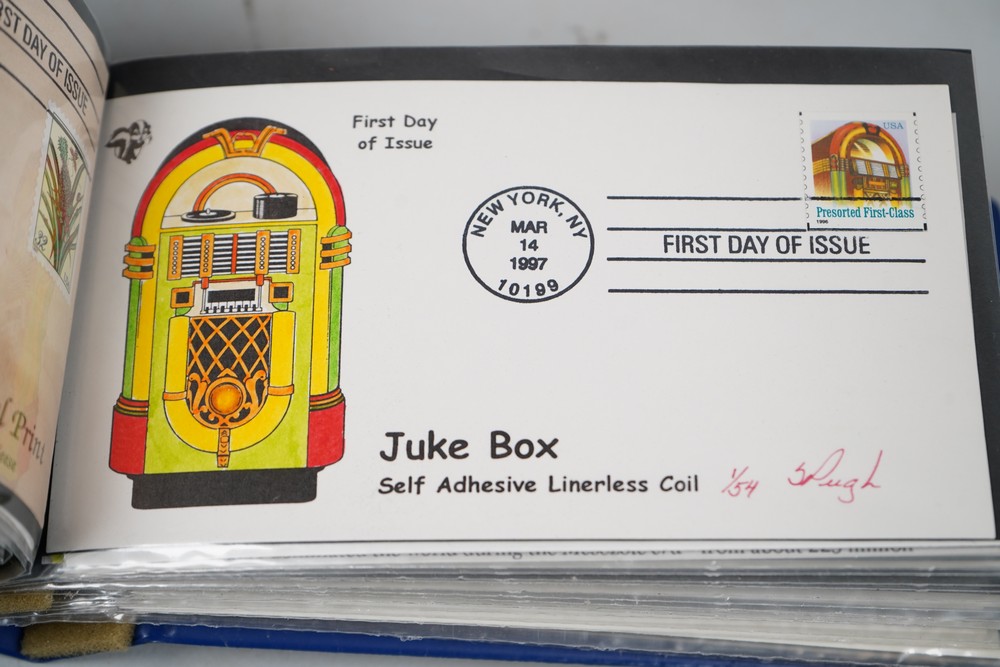 FIRST DAY OF ISSUE
32
Print
First Day
of Issue
USA
Presorted First-Class
1996
NEW YORK, NY
MAR
14
1997
10199
FIRST DAY OF ISSUE
Juke Box
Self Adhesive Linerless Coil
1/54 SPugh
the world during the Mesozoic era from about 225 million